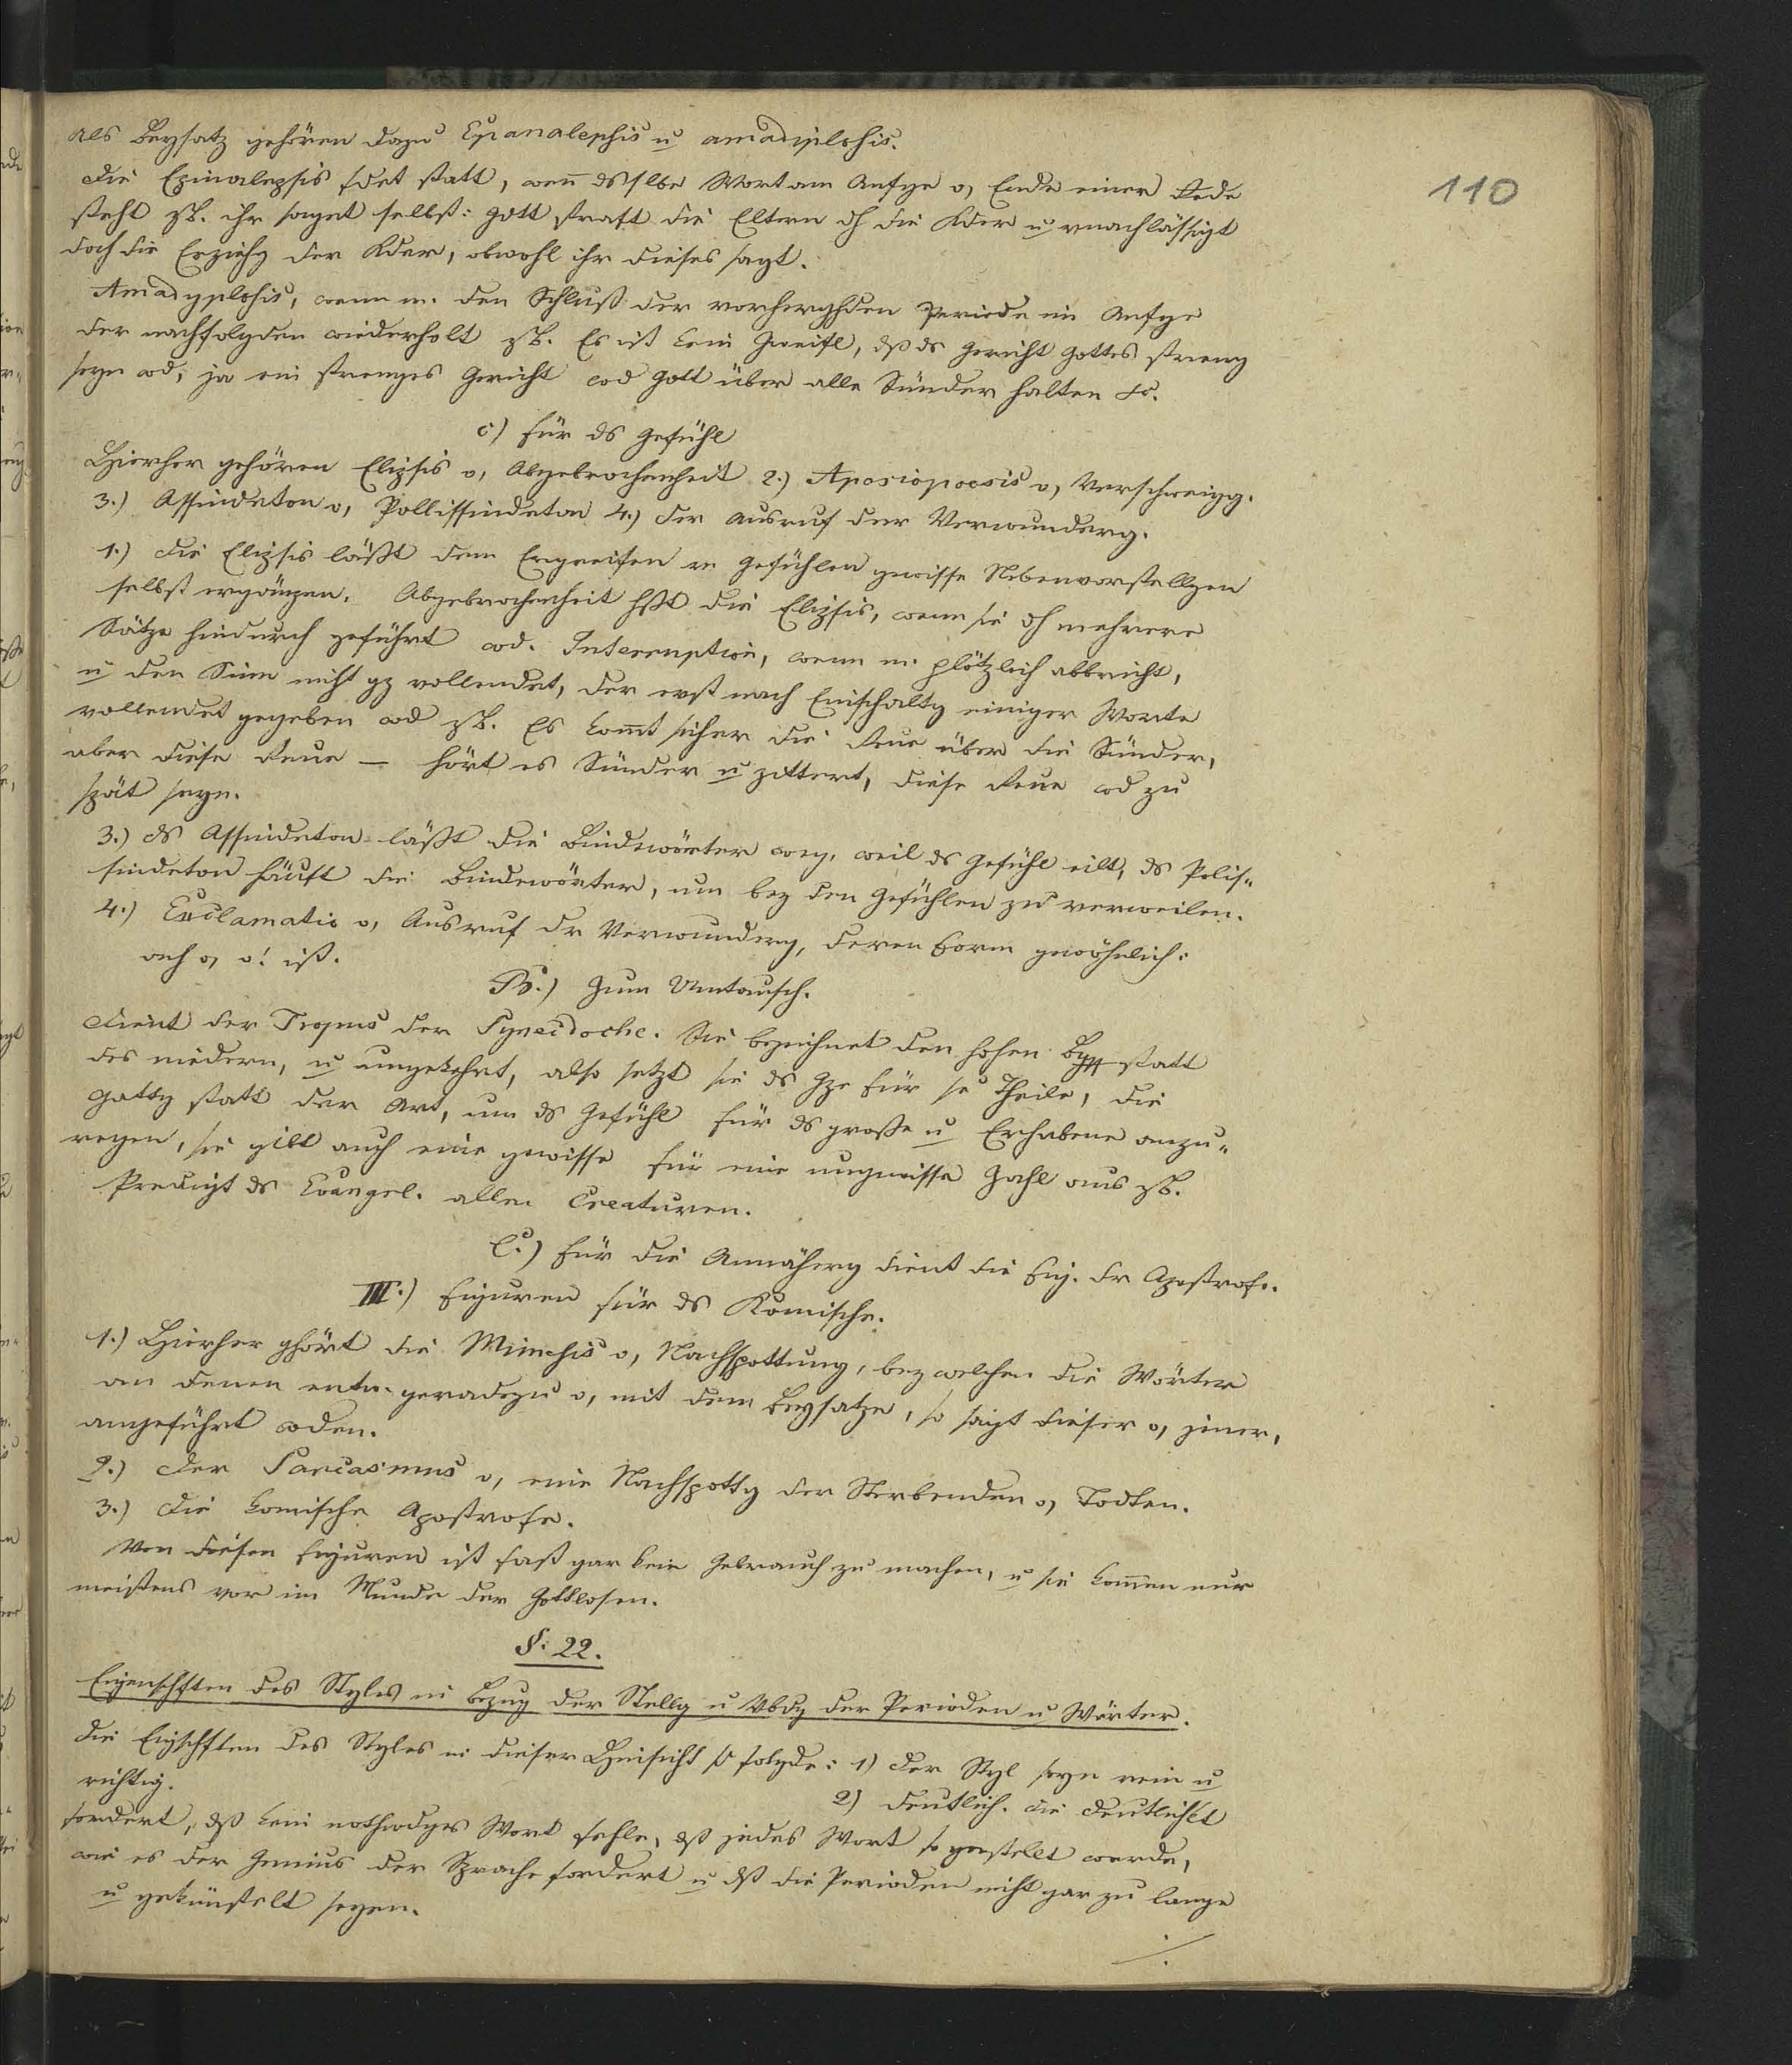 110
als Beysatz gehören dazu Epanalephis u amadiplohis.
Die Epinalepsis fdet statt, wen̄ dsslbe Wort am Anfge o, Ende einer Rede
steht zB. ihr saget selbst: Gott straft die Eltern dh die Kder u vnachlässigt
doch die Erziehg der Kder, obwohl ihr dieses sagt.
Amadyplohis, wenn m. den Schluß der vorherghden Periode im Anfge
der nachfolgden wiederholt zB. Es ist kein Zweifl, dß ds Gericht Gottes streng
seyn wd, ja ein strenges Gericht wd Gott über alle Sünder halten &.
c) für ds Gefühl
Hierher gehören Elipsis o, Abgebrochenheit 2.) Aposiopoesis o, Verschweigg.
3.) Assindeton o, Pollissindeton 4.) der Ausruf der Verwunderg.
1.) Die Elipsis läßt dem Ergreifen in Gefühlen gewisse Nebenvorstellgen
selbst ergänzen. Abgebrochenheit hßt die Elipsis, wenn sie dh mehrere
Sätze hindurch geführt wd. Interruption, wenn m. plötzlich abbricht,
u den Sinn nicht gz vollendet, der erst nach Einschaltg einiger Worte
vollendet gegeben wd zB. Es kom̄t sicher die Reue über die Sünder,
aber diese Reue — hört es Sünder u zittert, diese Reue wd zu
spät seyn.
3.) ds Assindeton läßt die Bindewörter weg, weil ds Gefühl eilt, ds Polis„
sindeton häuft die Bindewörter, um bey den Gefühlen zu verweilen.
4.) Exclamatio o, Ausruf dr Verwunderg, deren Form gewöhnlich:
ach o, o! ist.
B.) Zum Umtausch.
dient der Tropus der Synecdoche. Sie bezeichnet den hohen Bgff statt
des niedern, u umgekehrt, also setzt sie ds Gze für se Theile, die
Gattg statt der Art, um ds Gefühl für ds große u Erhabene anzu„
regen, sie gibt auch eine gewisse für eine ungewisse Zahl aus zB.
Prediget ds Evangel. allen Creaturen.
C.) Für die Annäherg dient die Fig. dr Apostrofe.
III.) Figuren für ds Komische.
1.) Hierher ghört die Mimehis o, Nachspottung, bey welchen die Wörter
an denen entw. geradezu o, mit dem Beysatze, so sagt dieser o, jener,
angeführt wden.
2.) Der Sarcasmus o, eine Nachspottg der Sterbenden o, Todten.
3.) Die komische Apostrofe.
Von diesen Figuren ist fast gar kein Gebrauch zu machen, u sie kom̄en nur
meistens vor im Munde der Gottlosen.
§. 22.
Eigenschften des Styles in Bezug der Stellg u Vbdg der Perioden u Wörter.
Die Eigschften des Styles in dieser Hinsicht sd folgde: 1) Der Styl seyn rein u
richtig. 2) deutlich. die Deutlichkt
fordert, dß kein nothwdges Wort fehle, dß jedes Wort so gestellt werde,
wie es der Genius der Sprache fordert u dß die Perioden nicht gar zu lange
u gekünstelt seyen.
./.